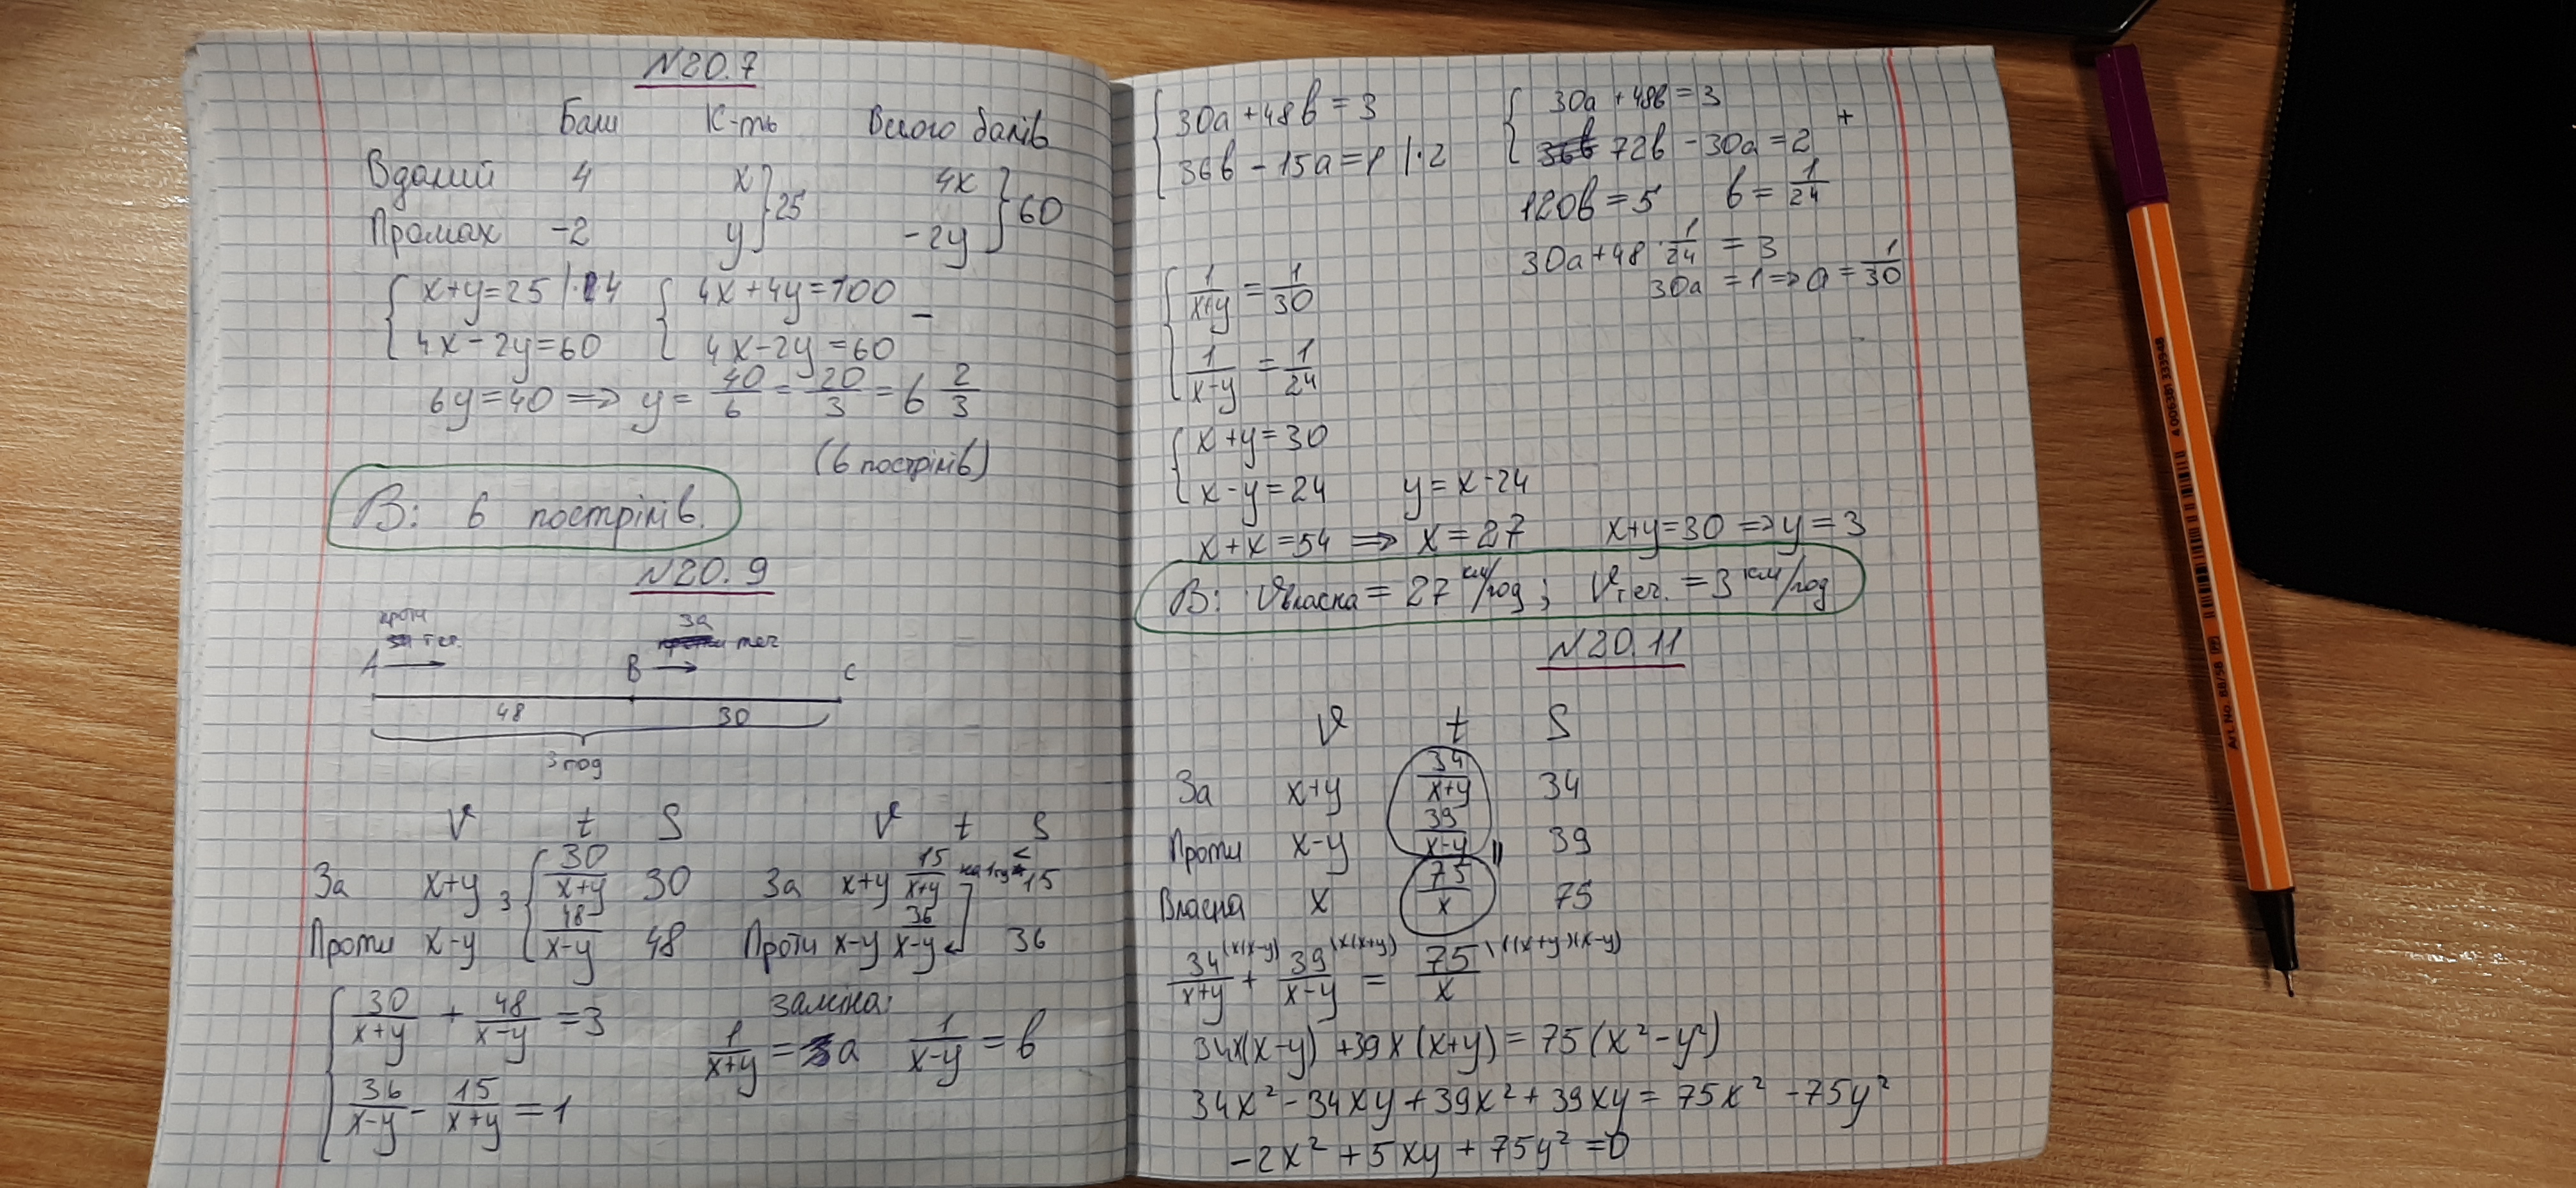 N20.7
Бали К-ть Всього балів
Вдалий 4 x }25 4x }60
Промах -2 y -2y
{ x+y=25 |·4 { 4x+4y=100 -
4x-2y=60 4x-2y=60
6y=40 => y = 40/6 = 20/3 = 6 2/3
(6 пострілів)
В: 6 пострілів.
N20.9
проти теч. за теч
A → B → C
48 30
3 год
V t S V t S
За x+y 3 { 30/(x+y) 30 За x+y 15/(x+y) на 1 год < 15
Проти x-y 48/(x-y) 48 Проти x-y 36/(x-y) 36
{ 30/(x+y) + 48/(x-y) = 3
36/(x-y) - 15/(x+y) = 1
заміна:
1/(x+y) = a 1/(x-y) = b
{ 30a+48b=3
36b-15a=1 |·2
{ 30a+48b=3 +
72b-30a=2
120b=5 b=1/24
30a+48·1/24=3
30a=1 => a=1/30
{ 1/(x+y) = 1/30
1/(x-y) = 1/24
{ x+y=30
x-y=24 y=x-24
x+x=54 => x=27 x+y=30 => y=3
В: Vвласна = 27 км/год; Vтеч. = 3 км/год
N20.11
V t S
За x+y 34/(x+y) 34
Проти x-y 39/(x-y) 39
Власна x 75/x 75
34/(x+y) \(x(x-y) + 39/(x-y) \(x(x+y) = 75/x \((x+y)(x-y)
34x(x-y)+39x(x+y)=75(x²-y²)
34x²-34xy+39x²+39xy=75x²-75y²
-2x²+5xy+75y²=0
Art. No 88/56
4 006381 333948